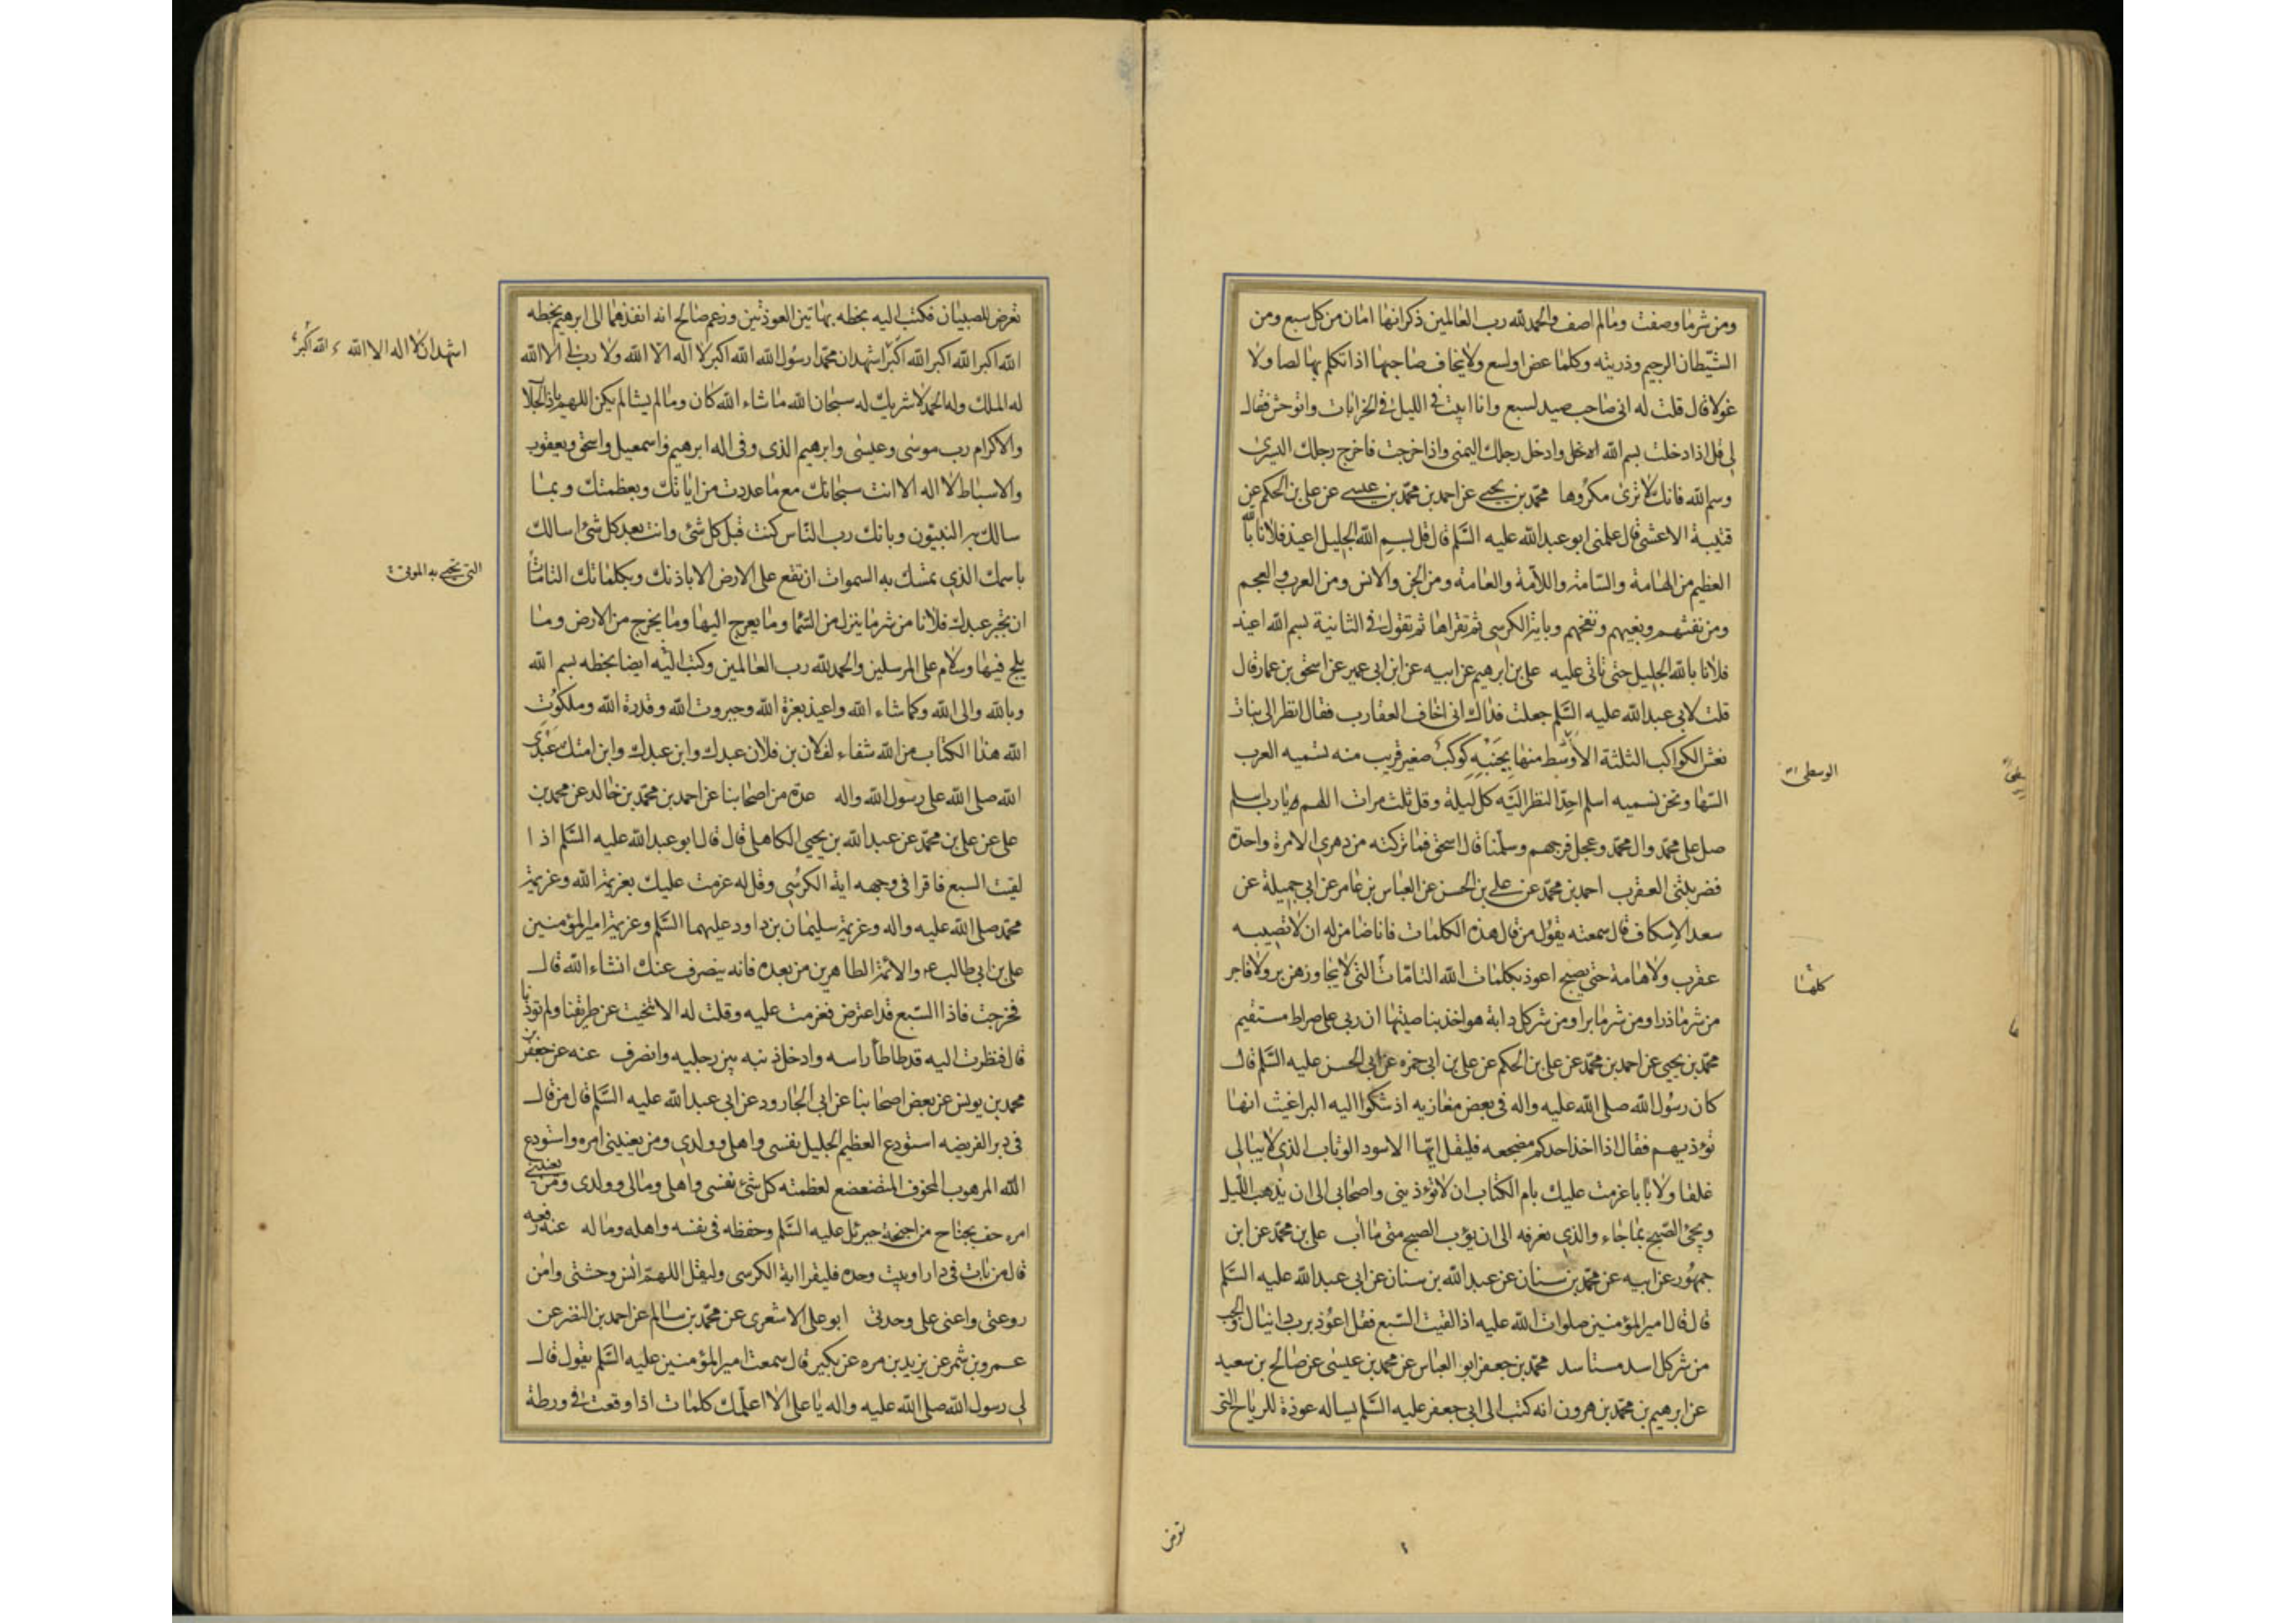 ومن شر ما وصفت وما لم اصف والحمد لله رب العالمين ذكر انها امان من كل سبع ومن
الشيطان الرجيم وذريته وكلما عض او لسع ولا يخاف صاحبها اذا تكلم بها لصا ولا
غولا قال قلت له انى صاحب صيد لسبع وانا ابيت فى الليل فى الخرابات واتوحش فقال
لى قل اذا دخلت بسم الله ادخل وادخل رجلك اليمنى واذا خرجت فاخرج رجلك اليسرى
وسم الله فانك لا ترى مكروها محمد بن يحيى عن احمد بن محمد بن عيسى عن على بن الحكم عن
قتيبة الاعشى قال علمنى ابو عبد الله عليه السلم قال قل بسم الله الجليل اعيذ فلانا بالله
العظيم من الهامة والسامة واللامة والعامة ومن الجن والانس ومن العرب والعجم
ومن نفثهم وبغيهم ونفخهم وباية الكرسى ثم تقراها ثم تقول فى الثانية بسم الله اعيذ
فلانا بالله الجليل حتى تاتى عليه على بن ابرهيم عن ابيه عن ابن ابى عمير عن اسحق بن عمار قال
قلت لابى عبد الله عليه السلم جعلت فداك انى اخاف العقارب فقال انظر الى بنات
نعش الكواكب الثلثة الاوسط منها بجنبه كوكب صغير قريب منه تسميه العرب
الوسطى
السها ونحن نسميه اسلم احد النظر اليه كل ليلة وقل ثلث مرات اللهم يا رب اسلم
صل على محمد وال محمد وعجل فرجهم وسلمنا قال اسحق فما تركته من دهرى الا مرة واحدة
فضربتنى العقرب احمد بن محمد عن على بن الحسن عن العباس بن عامر عن ابى جميلة عن
سعد الاسكاف قال سمعته يقول من قال هذه الكلمات فانا ضامن له ان لا تصيبه
عقرب ولا هامة حتى يصبح اعوذ بكلمات الله التامات التى لا يجاوزهن بر ولا فاجر
كلها
من شر ما ذرا ومن شر ما برا ومن شر كل دابة هو اخذ بناصيتها ان ربى على صراط مستقيم
محمد بن يحيى عن احمد بن محمد عن على بن الحكم عن على بن ابى حمزه عن ابى الحسن عليه السلم قال
كان رسول الله صلى الله عليه واله فى بعض مغازيه اذ شكوا اليه البراغيث انها
تؤذيهم فقال اذا اخذ احدكم مضجعه فليقل ايها الاسود الوثاب الذى لا يبالى
غلقا ولا بابا عزمت عليك بام الكتاب ان لا تؤذينى واصحابى الى ان يذهب الليل
ويجئ الصبح بما جاء والذى نعرفه الى ان يؤب الصبح متى ما اب على بن محمد عن ابن
جمهور عن ابيه عن محمد بن سنان عن عبد الله بن سنان عن ابى عبد الله عليه السلم
قال قال امير المؤمنين صلوات الله عليه اذا لقيت السبع فقل اعوذ برب دانيال والجب
من شر كل اسد مستاسد محمد بن جعفر ابو العباس عن محمد بن عيسى عن صالح بن سعيد
عن ابرهيم بن محمد بن هرون انه كتب الى ابى جعفر عليه السلم يساله عوذة للرياح التى
تعرض
تعرض للصبيان فكتب اليه بخطه بهاتين العوذتين وزعم صالح انه انفذهما الى ابرهيم بخطه
الله اكبر الله اكبر الله اكبر اشهد ان محمدا رسول الله الله اكبر لا اله الا الله ولا رب لى الا الله
اشهد ان لا اله الا الله الله اكبر
له الملك وله الحمد لا شريك له سبحان الله ما شاء الله كان وما لم يشا لم يكن اللهم يا ذا الجلال
والاكرام رب موسى وعيسى وابرهيم الذى وفى اله ابرهيم واسمعيل واسحق ويعقوب
والاسباط لا اله الا انت سبحانك مع ما عددت من اياتك وبعظمتك وبما
سالك به النبيون وبانك رب الناس كنت قبل كل شئ وانت بعد كل شئ اسالك
باسمك الذى تمسك به السموات ان تقع على الارض الا باذنك وبكلماتك التامات
التى تحيى به الموتى
ان تجير عبدك فلانا من شر ما ينزل من السما وما يعرج اليها وما يخرج من الارض وما
يلج فيها وسلام على المرسلين والحمد لله رب العالمين وكتب اليه ايضا بخطه بسم الله
وبالله والى الله وكما شاء الله واعيذ بعزة الله وجبروت الله وقدرة الله وملكوت
الله هذا الكتاب من الله شفاء لفلان بن فلان عبدك وابن عبدك وابن امتك عبدى
الله صلى الله على رسول الله واله عدة من اصحابنا عن احمد بن محمد بن خالد عن محمد بن
على عن على بن محمد عن عبد الله بن يحيى الكاهلى قال قال ابو عبد الله عليه السلم اذا
لقيت السبع فاقرا فى وجهه اية الكرسى وقل له عزمت عليك بعزيمة الله وعزيمة
محمد صلى الله عليه واله وعزيمة سليمان بن داود عليهما السلم وعزيمة امير المؤمنين
على بن ابى طالب والائمة الطاهرين من بعده فانه ينصرف عنك انشاء الله قال
فخرجت فاذا السبع قد اعترض فعزمت عليه وقلت له الا تنحيت عن طريقنا ولم توذنا
قال فنظرت اليه قد طاطا راسه وادخل ذنبه بين رجليه وانصرف عنه عن جعفر بن
محمد بن يونس عن بعض اصحابنا عن ابى الجارود عن ابى عبد الله عليه السلم قال من قال
فى دبر الفريضه استودع العظيم الجليل نفسى واهلى وولدى ومن يعنينى امره واستودع
الله المرهوب المخوف المتضعضع لعظمته كل شئ نفسى واهلى ومالى وولدى ومن يعنينى
امره حف بجناح من اجنحة جبرئل عليه السلم وحفظه فى نفسه واهله وماله عنه رفعه
قال من بات فى دار او بيت وحده فليقرا اية الكرسى وليقل اللهم انس وحشتى وامن
روعتى واعنى على وحدتى ابو على الاشعرى عن محمد بن سالم عن احمد بن النضر عن
عمرو بن شمر عن يزيد بن مره عن بكير قال سمعت امير المؤمنين عليه السلم يقول قال
لى رسول الله صلى الله عليه واله يا على الا اعلمك كلمات اذا وقعت فى ورطة